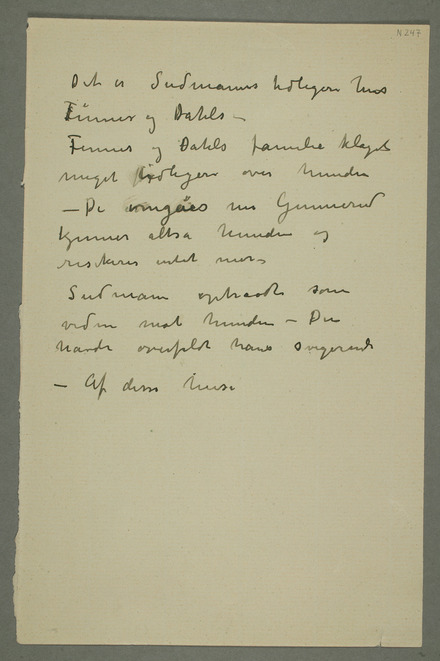 N 247
Det er Sudmanns tidligere hus
Finner og Dahls –
Finnes og Dahls familie klaget
meget tidligere over hunden
– De omgåes nu Gunnerud
kjenner altså hunden og
risikerer intet mer –
Sudmann optraadte som
vidne mot hunden – Den
havde overfaldt hans svigerinde
– Af disse huse